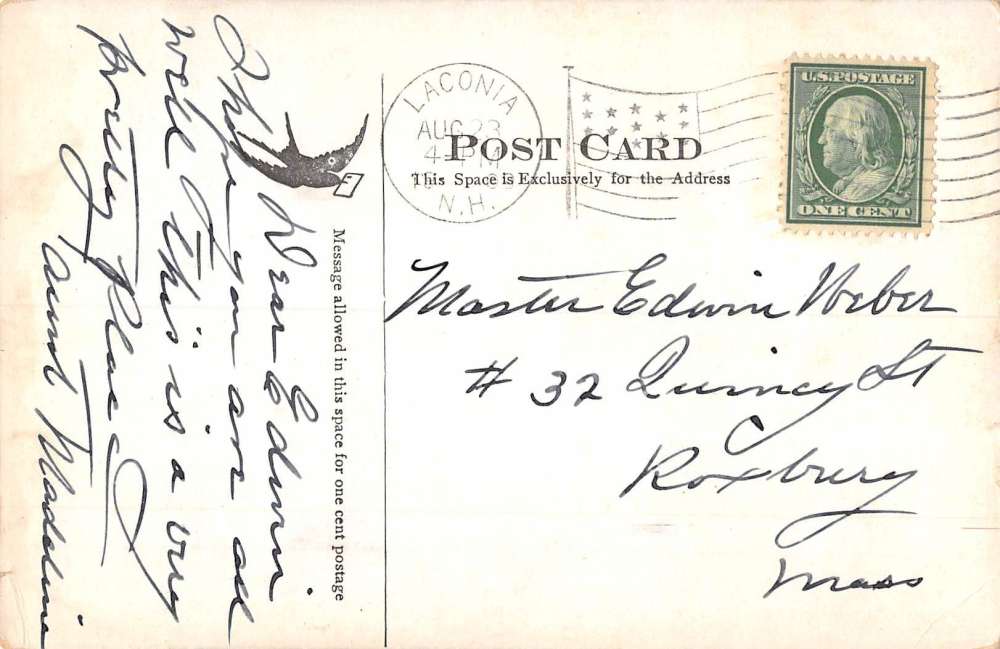 LACONIA
AUG 23
4-PM
N.H.
U.S. POSTAGE
ONE CENT
POST CARD
This Space is Exclusively for the Address
Message allowed in this space for one cent postage
Dear Edwin
I hope you are all
well This is a very
pretty place
Aunt Madeline
Master Edwin Weber
# 32 Quincy St
Roxbury
Mass